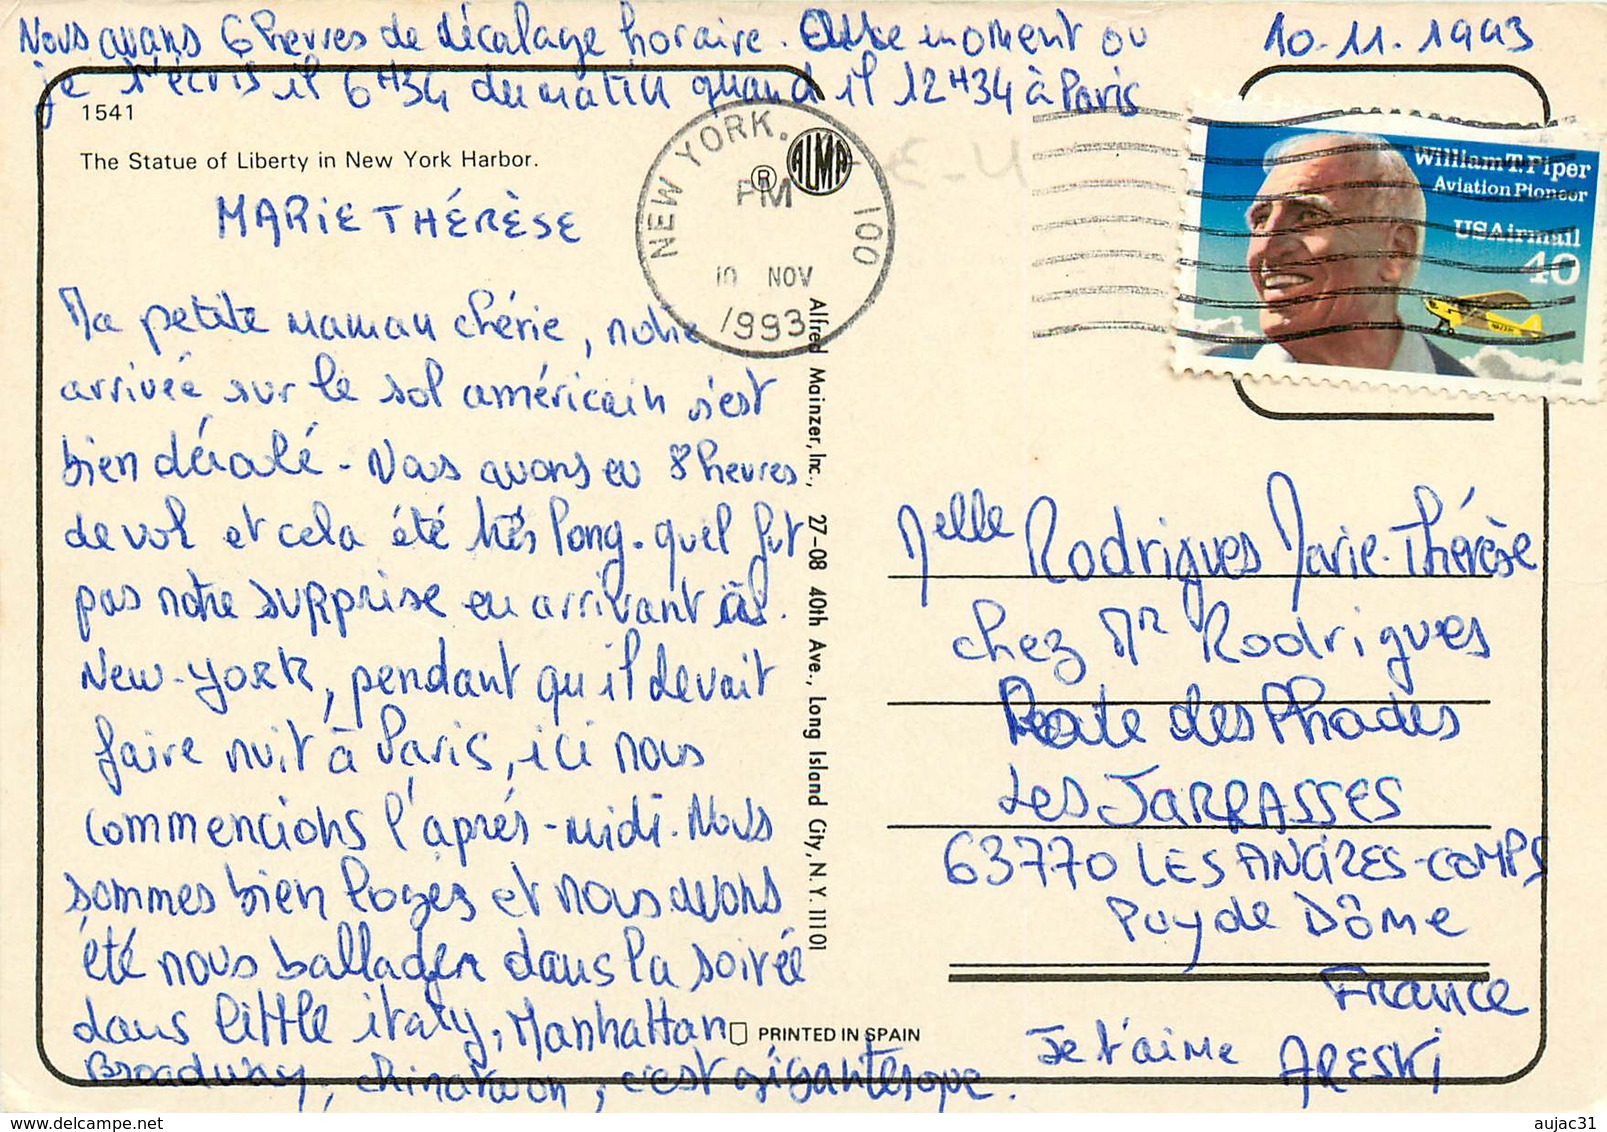 Nous avons 6 heures de décalage horaire. Au moment ou
je t'écris il 6H34 du matin quand il 12H34 à Paris
10.11.1993
1541
The Statue of Liberty in New York Harbor.
MARIE THÉRÈSE
Ma petite maman chérie, notre
arrivée sur le sol américain s'est
bien déroulé - Nous avons eu 8 heures
de vol et cela été très long. quel fut
pas notre surpprise en arrivant à
New-York, pendant qu'il devait
faire nuit à Paris, ici nous
commencions l'après-midi. Nous
sommes bien logés et nous avons
été nous ballader dans la soirée
dans little italy, Manhattan
Broadway, chinatwon, c'est gigantesque.
NEW YORK, 100
PM
10 NOV
1993
® ALMA
Alfred Mainzer, Inc., 27-08 40th Ave., Long Island City, N.Y. 11101
PRINTED IN SPAIN
William T. Piper
Aviation Pioneer
USAirmail
40
Melle Rodrigues Marie-Thérèse
chez Mr Rodrigues
Route des Phades
Les JARRASSES
63770 LES ANCIZES-COMPS
Puy de Dôme
France
Je t'aime ARESKI
aujac31